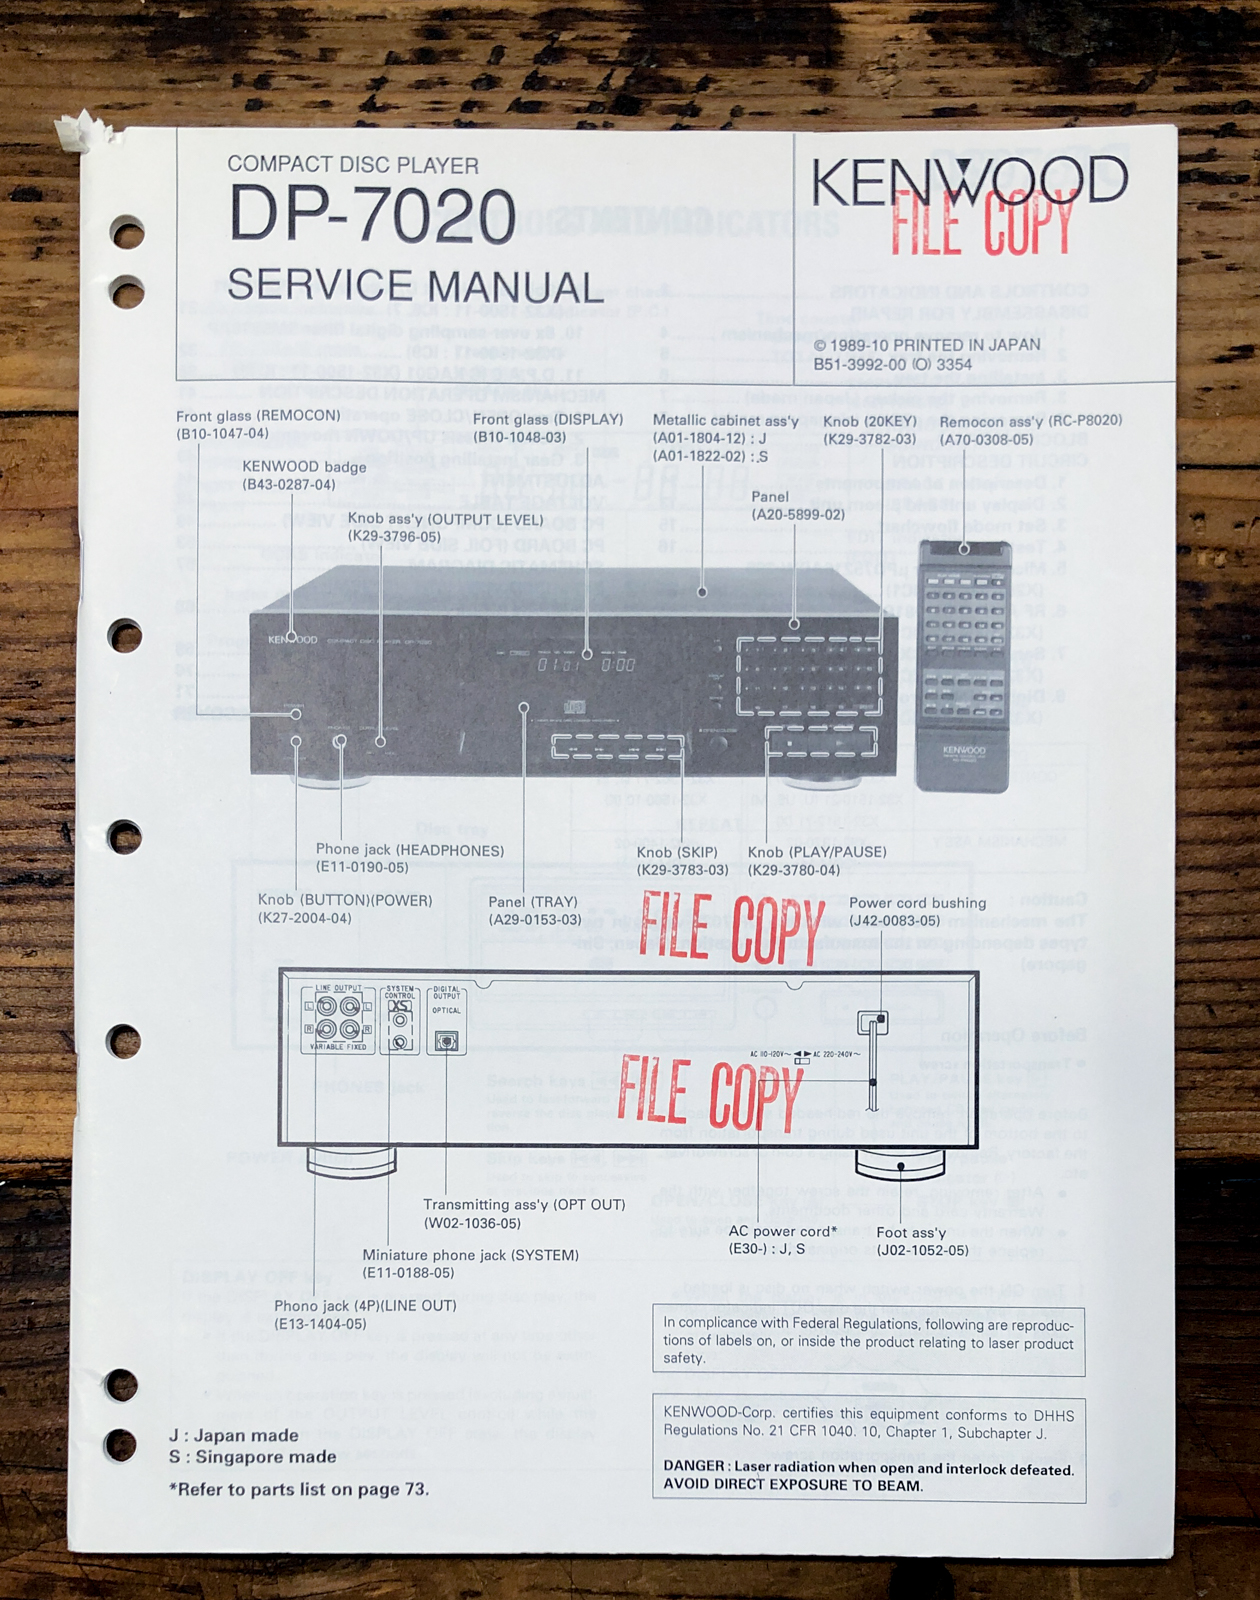 COMPACT DISC PLAYER
DP-7020
SERVICE MANUAL
KENWOOD
FILE COPY
© 1989-10 PRINTED IN JAPAN
B51-3992-00 (O) 3354
Front glass (REMOCON)
(B10-1047-04)
Front glass (DISPLAY)
(B10-1048-03)
Metallic cabinet ass'y
(A01-1804-12) : J
(A01-1822-02) : S
Knob (20KEY)
(K29-3782-03)
Remocon ass'y (RC-P8020)
(A70-0308-05)
KENWOOD badge
(B43-0287-04)
Panel
(A20-5899-02)
Knob ass'y (OUTPUT LEVEL)
(K29-3796-05)
KENWOOD
COMPACT DISC PLAYER DP-7020
0:00
KENWOOD
Phone jack (HEADPHONES)
(E11-0190-05)
Knob (SKIP)
(K29-3783-03)
Knob (PLAY/PAUSE)
(K29-3780-04)
Knob (BUTTON)(POWER)
(K27-2004-04)
Panel (TRAY)
(A29-0153-03)
FILE COPY
Power cord bushing
(J42-0083-05)
LINE OUTPUT
L L
R R
VARIABLE FIXED
SYSTEM
CONTROL
XS
DIGITAL
OUTPUT
OPTICAL
AC 110-120V~ ◄ ► AC 220-240V~
FILE COPY
Transmitting ass'y (OPT OUT)
(W02-1036-05)
AC power cord*
(E30-) : J, S
Foot ass'y
(J02-1052-05)
Miniature phone jack (SYSTEM)
(E11-0188-05)
Phono jack (4P)(LINE OUT)
(E13-1404-05)
In complicance with Federal Regulations, following are reproduc-
tions of labels on, or inside the product relating to laser product
safety.
KENWOOD-Corp. certifies this equipment conforms to DHHS
Regulations No. 21 CFR 1040. 10, Chapter 1, Subchapter J.
DANGER : Laser radiation when open and interlock defeated.
AVOID DIRECT EXPOSURE TO BEAM.
J : Japan made
S : Singapore made
*Refer to parts list on page 73.